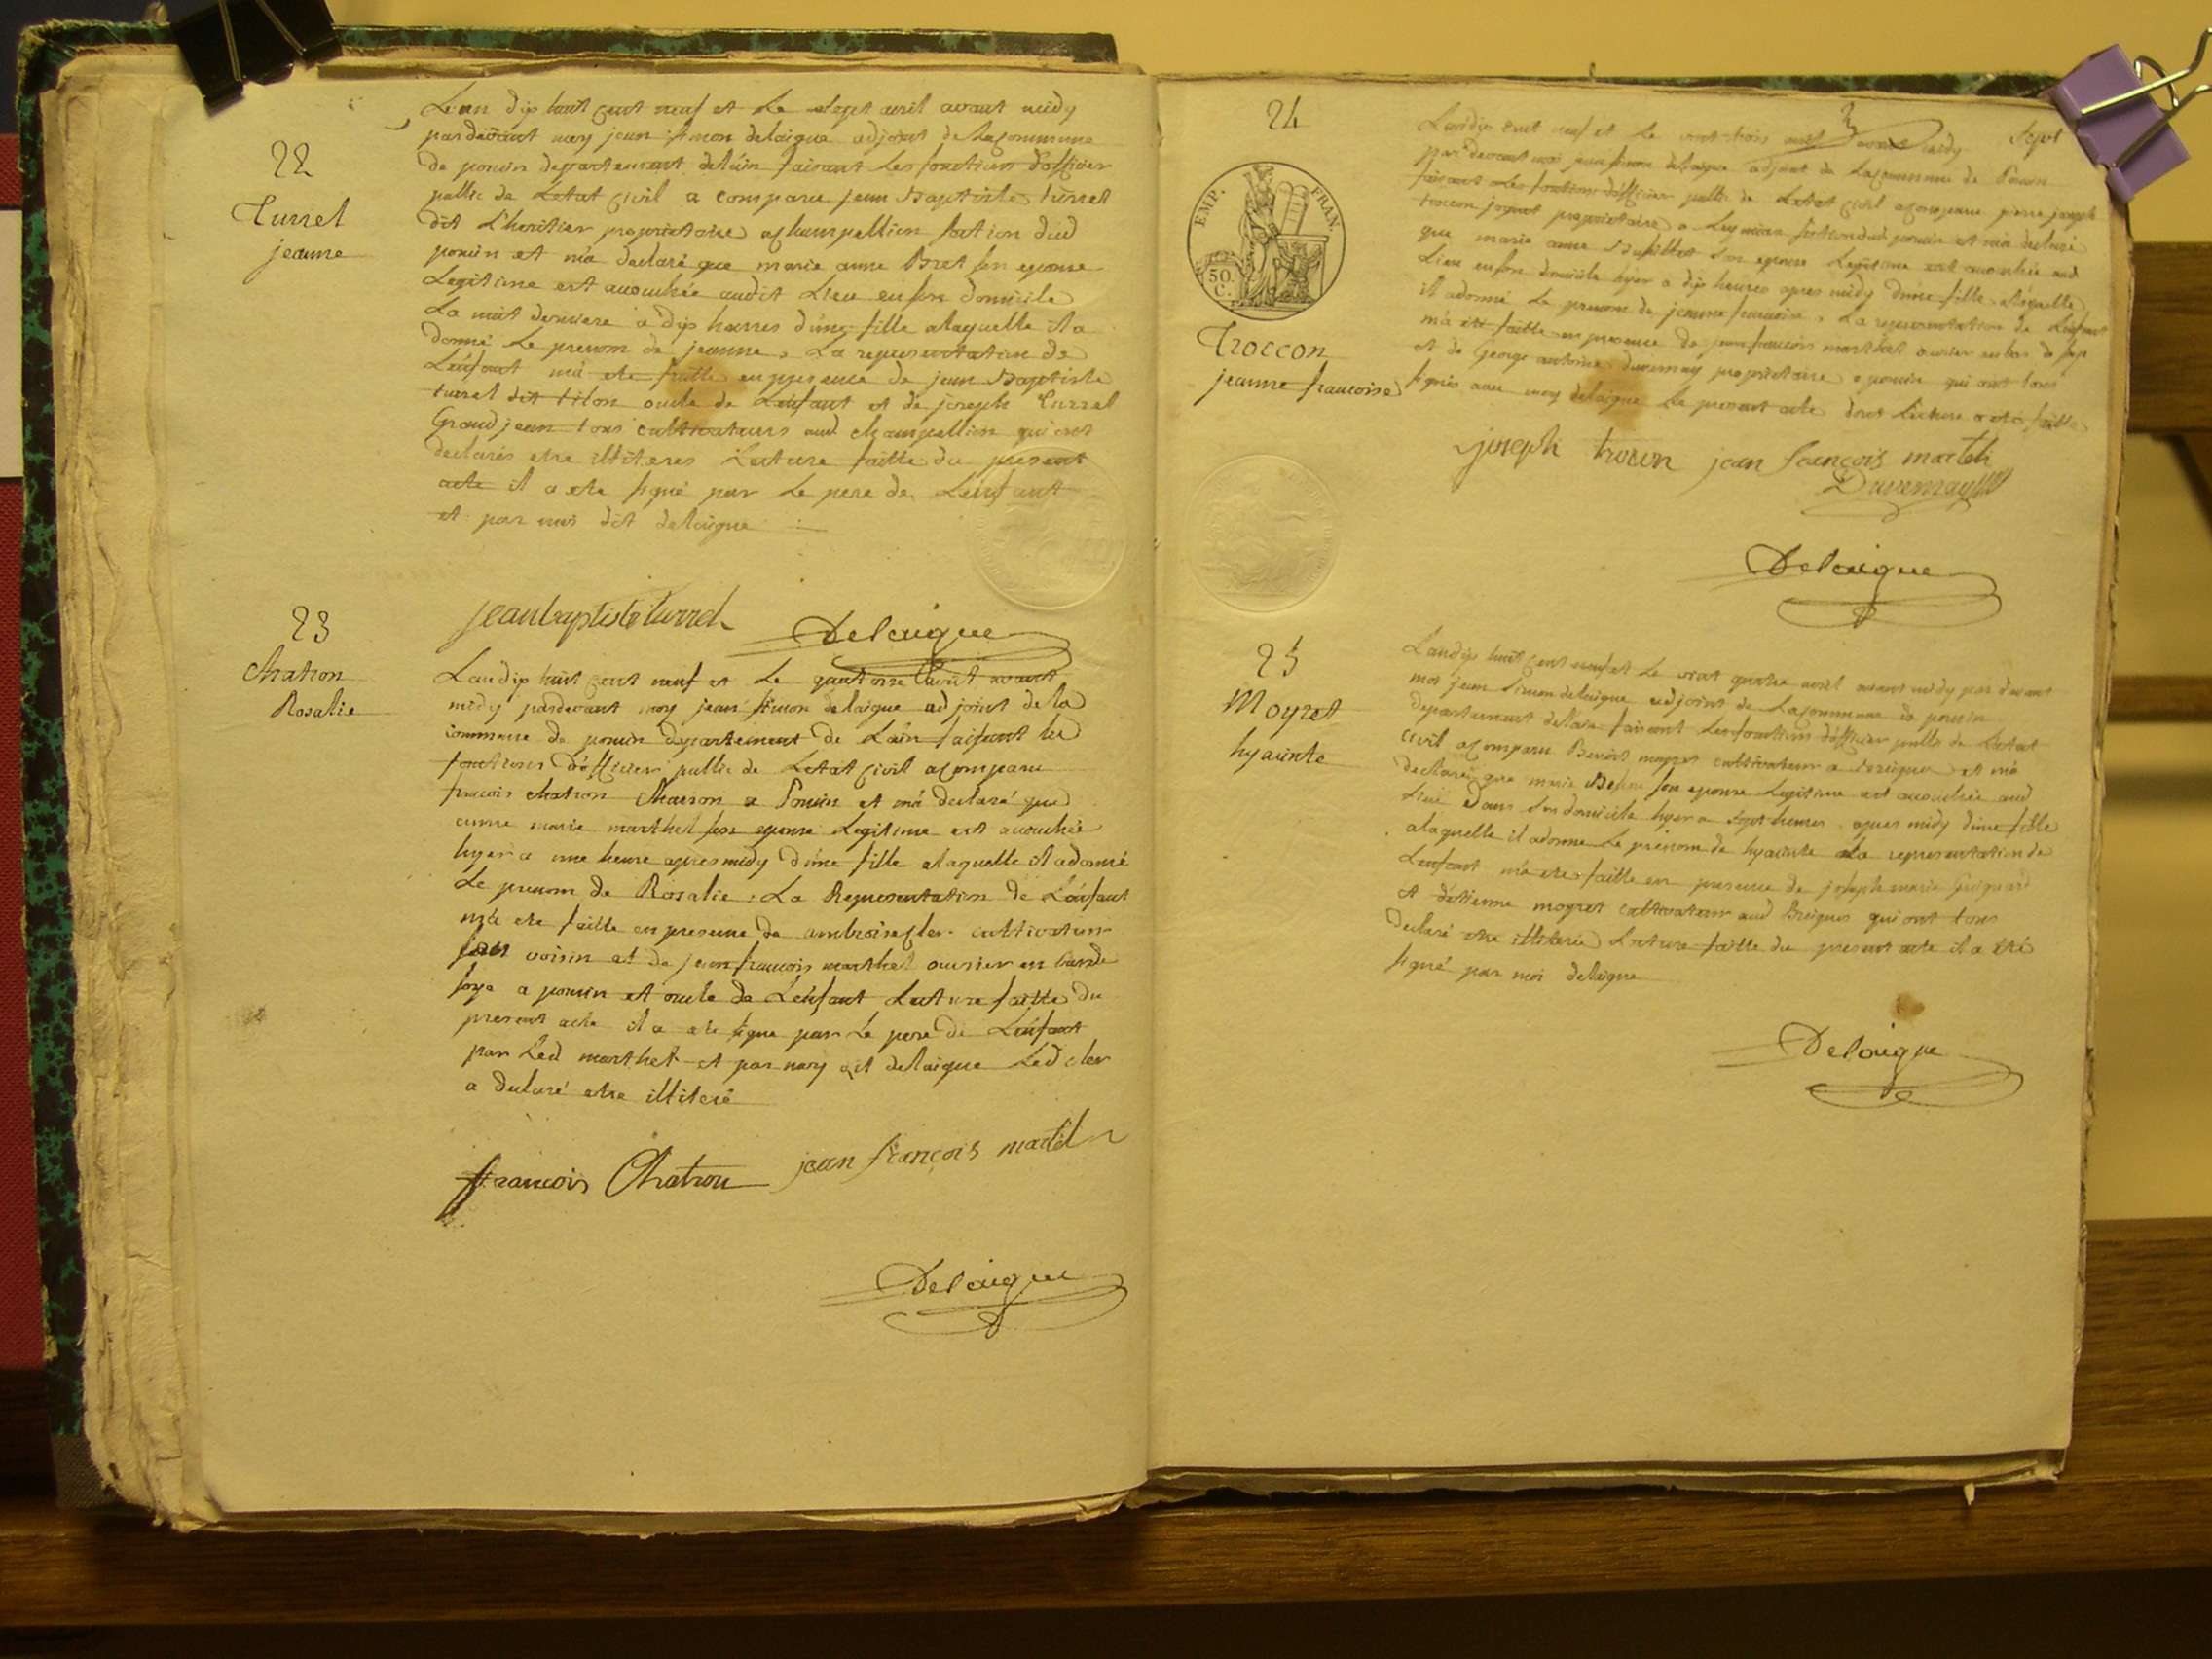 22
Turrel
jeanne
Lan dix huit cent neuf et le sept avril avant midy
pardevant moy jean simon delaigue adjoint de la commune
de poncin departement de lain faisant les fonctions dofficier
public de Letat civil a comparu jean Baptiste turrel
dit L'heritier proprietaire a champellion section dud
poncin et m'a declaré que marie anne Bret son epouse
Legitime est accouchée audit Lieu en son domicile
La nuit derniere a dix heures d'une fille alaquelle il a
donné Le prenom de jeanne, La representation de
L'enfant m'a ete faitte en presence de jean Baptiste
turrel dit oncle de L'enfant et de joseph Turrel
Grandjean tous cultivateurs aud champellion qui ont
declarés etre illiteres Lecture faitte du present
acte il a ete signé par Le pere de L'enfant
et par moi dit delaigue
jean baptiste turrel Delaigue
23
Chatron
Rosalie
Lan dix huit cent neuf et Le quatorze avril avant
midy pardevant moy jean simon delaigue adjoint de la
commune de poncin departement de Lain faisant les
fonctions d'officier public de Letat civil a comparu
francois chatron a Poncin et m'a declaré que
anne marie marthel son epouse Legitime est accouchée
hyer a une heure apres midy d'une fille alaquelle il a donné
Le prenom de Rosalie : La Representation de L'enfant
m'a ete faitte en presence de ambroise cler cultivateur
son voisin et de jean francois marthel ouvrier en bas de
soye a poncin et oncle de L'enfant Lecture faitte du
present acte il a ete signe par Le pere de L'enfant
par Led marthel et par moy dit delaigue Led cler
a declaré etre illiteré
francois Chatron jean françois martel
Delaigue
24
sept
EMP. FRAN.
50
C.
Troccon
jeanne francoise
Lan dix cent neuf et Le vint trois avril avant midy
par devant moi jean simon delaigue adjoint de La commune de Poncin
faisant Les fonctions d'officier public de Letat civil a comparu pierre joseph
troccon proprietaire a section dud poncin et m'a declaré
que marie anne son epouse Legitime est accouchée aud
Lieu en son domicile hyer a dix heures apres midy d'une fille alaquelle
il a donné Le prenom de jeanne francoise, La representation de L'enfant
m'a ete faitte en presence de jean francois marthel ouvrier en bas de soye
et de George antoine duvernay proprietaire a poncin qui ont tous
signés avec moy delaigue Le present acte dont Lecture a ete faitte
joseph trocon jean françois martel
Duvernay
Delaigue
25
Moyret
hyacinte
Lan dix huit cent neuf et Le vint quatre avril avant midy par devant
moi jean simon delaigue adjoint de La commune de poncin
departement de lain faisant Les fonctions d'officier public de Letat
civil a comparu Benoit moyret cultivateur a et m'a
declaré que marie son epouse Legitime est accouchée aud
Lieu dans son domicile hyer a sept heures apres midy d'une fille
alaquelle il a donné Le prénom de hyacinte La representation de
L'enfant m'a ete faitte en presence de joseph marie
et d'etienne moyret cultivateur aud qui ont tous
declaré etre illiterés Lecture faitte du present acte il a été
signé par moi delaigue
Delaigue